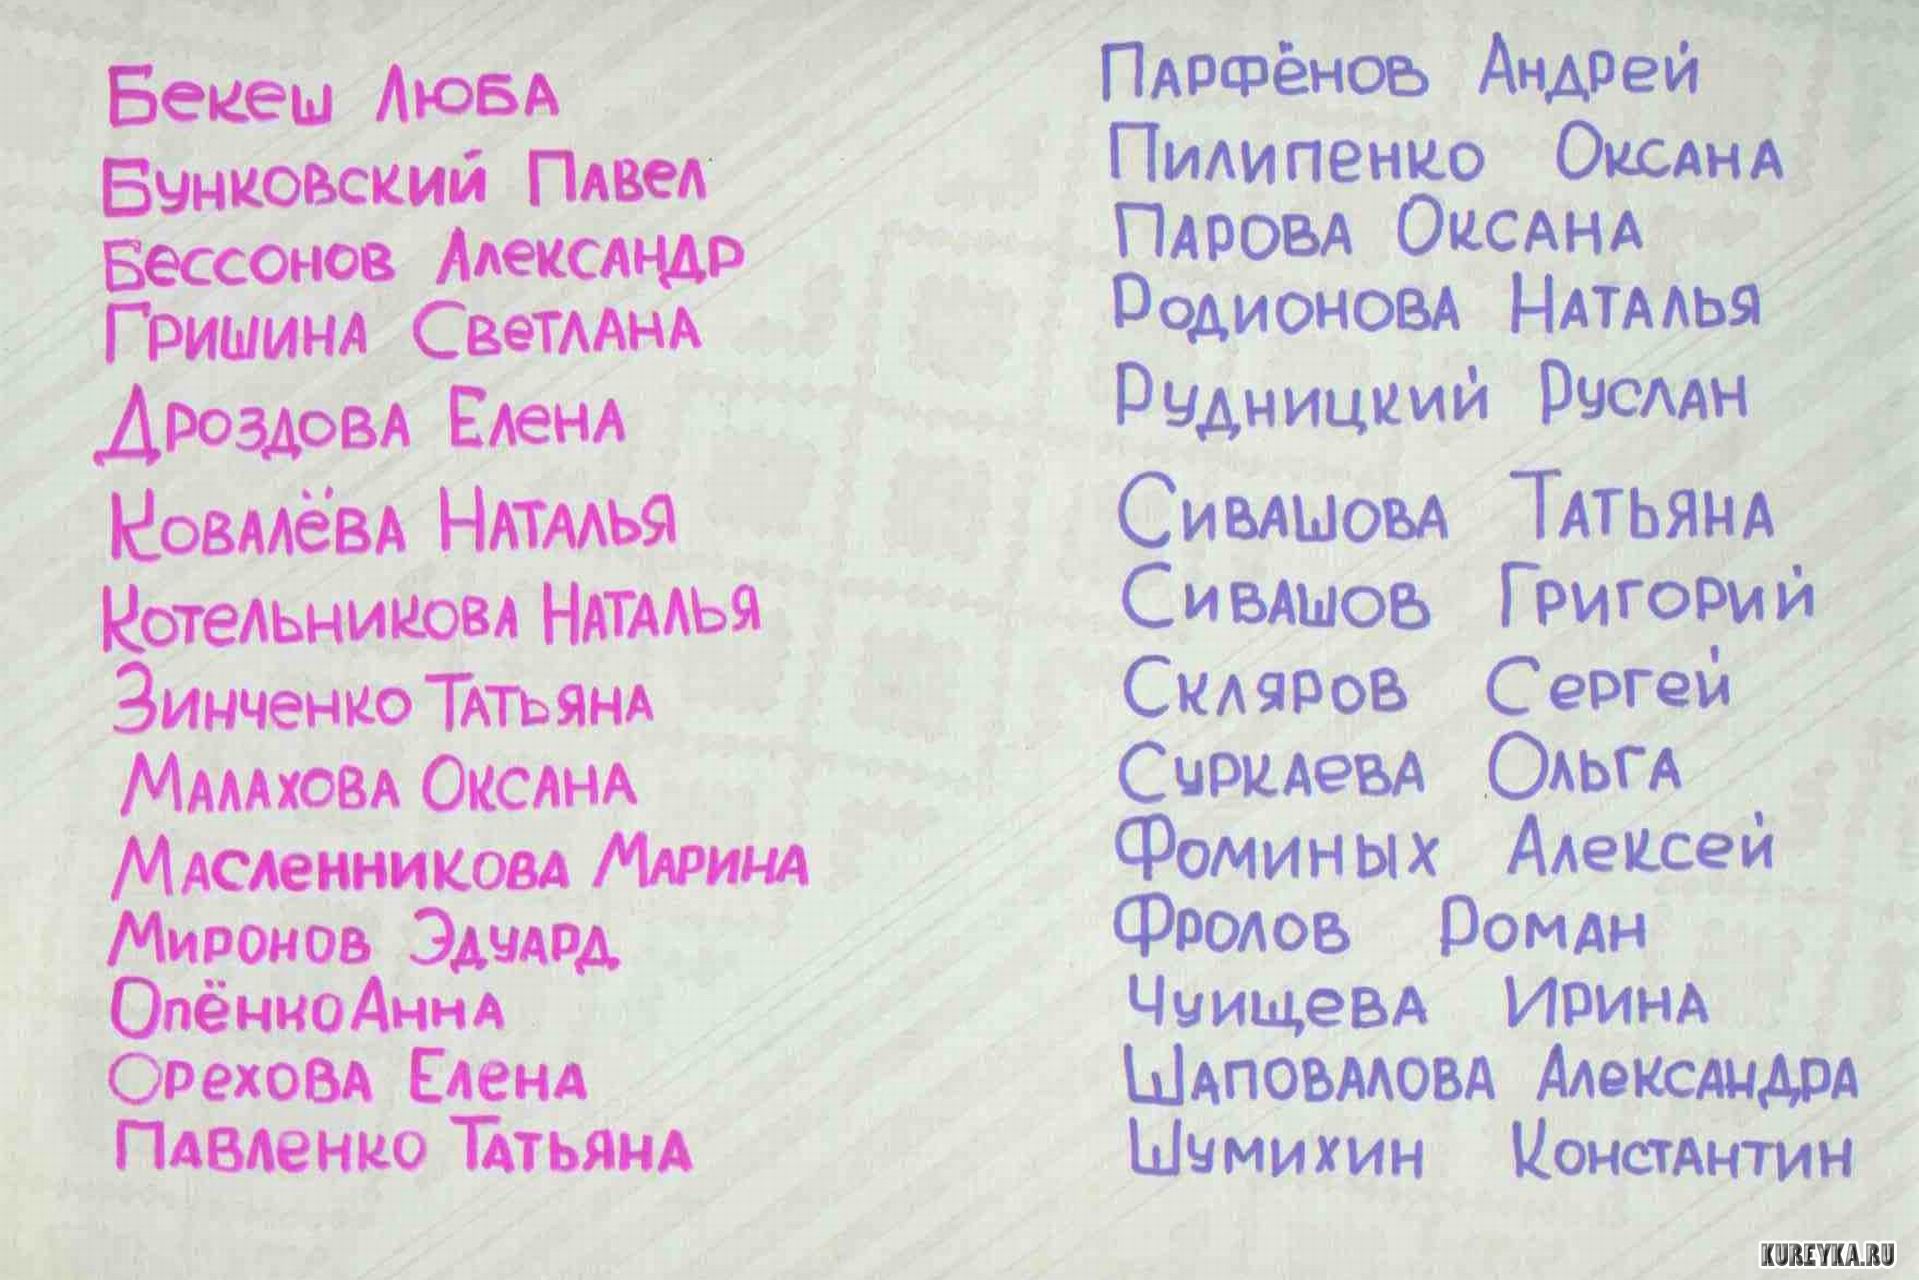 Бекеш Люба
Бунковский Павел
Бессонов Александр
Гришина Светлана
Дроздова Елена
Ковалёва Наталья
Котельникова Наталья
Зинченко Татьяна
Малахова Оксана
Масленникова Марина
Миронов Эдуард
Опёнко Анна
Орехова Елена
Павленко Татьяна
Парфёнов Андрей
Пилипенко Оксана
Парова Оксана
Родионова Наталья
Рудницкий Руслан
Сивашова Татьяна
Сивашов Григорий
Скляров Сергей
Суркаева Ольга
Фоминых Алексей
Фролов Роман
Чуищева Ирина
Шаповалова Александра
Шумихин Константин
KUREYKA.RU